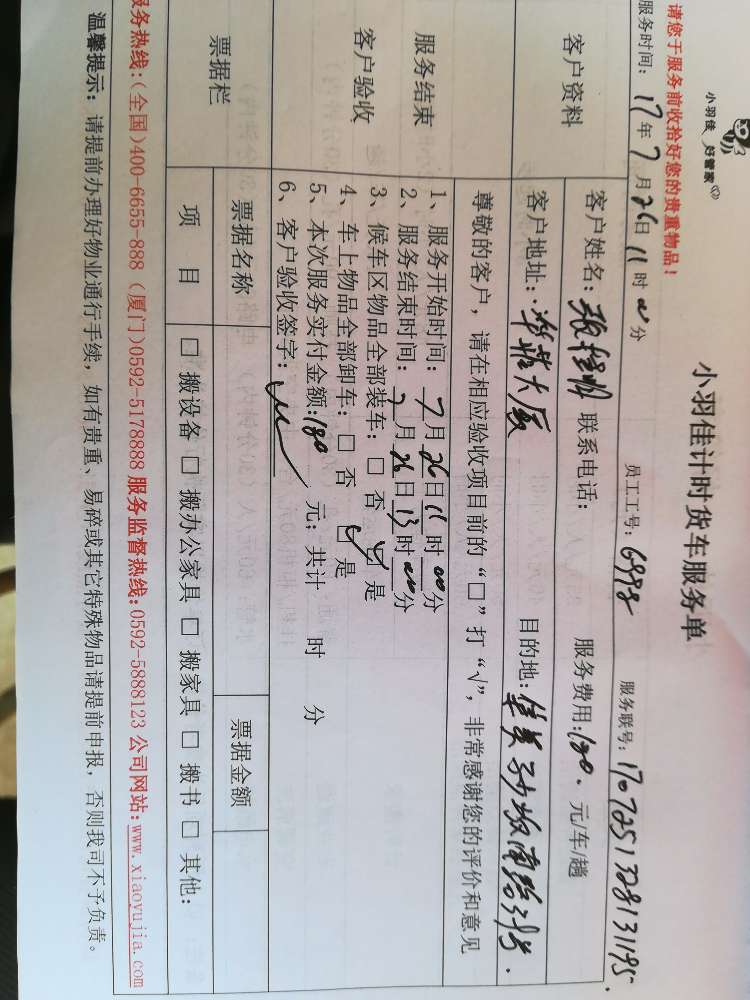 小羽佳 好管家
请您于服务前收拾好您的贵重物品!
小羽佳计时货车服务单
服务时间: 17年7月26日11时00分 员工工号: 6998 服务联号: 1707251328131195.
客户资料
客户姓名: 联系电话: 服务费用:180. 元/车/趟
客户地址: 大厦 目的地: 南路
服务结束
客户验收
尊敬的客户,请在相应验收项目前的“□”打“√”,非常感谢您的评价和意见
1、服务开始时间: 7月26日11时00分
2、服务结束时间: 7月26日13时00分
3、候车区物品全部装车: □ 否 ☑ 是
4、车上物品全部卸车: □ 否 ☑ 是
5、本次服务实付金额:180 元; 共计 时 分
6、客户验收签字:
票据栏
票据名称 票据金额
项目 □ 搬设备 □ 搬办公家具 □ 搬家具 □ 搬书 □ 其他:
服务热线:(全国)400-6655-888 (厦门)0592-5178888 服务监督热线:0592-5888123 公司网站:www.xiaoyujia.com
温馨提示: 请提前办理好物业通行手续, 如有贵重、易碎或其它特殊物品请提前申报, 否则我司不予负责。